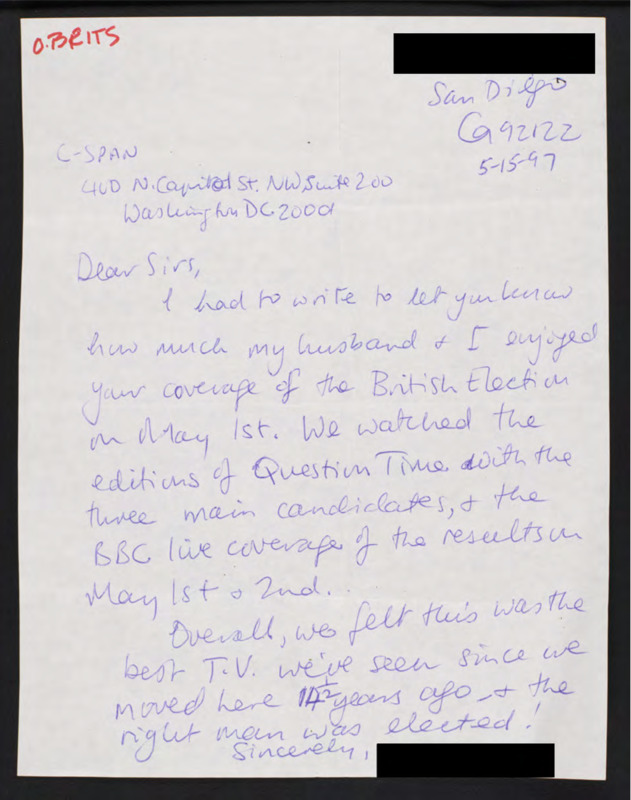 O.BRITS
San Diego
Ca 92122
5-15-97
C-SPAN
400 N. Capitol St. NW Suite 200
Washington DC 20001
Dear Sirs,
I had to write to let you know
how much my husband & I enjoyed
your coverage of the British Election
on May 1st. We watched the
editions of Question Time with the
three main candidates, & the
BBC live coverage of the results on
May 1st & 2nd.
Overall, we felt this was the
best T.V. we've seen since we
moved here 14½ years ago & the
right man was elected!
Sincerely,